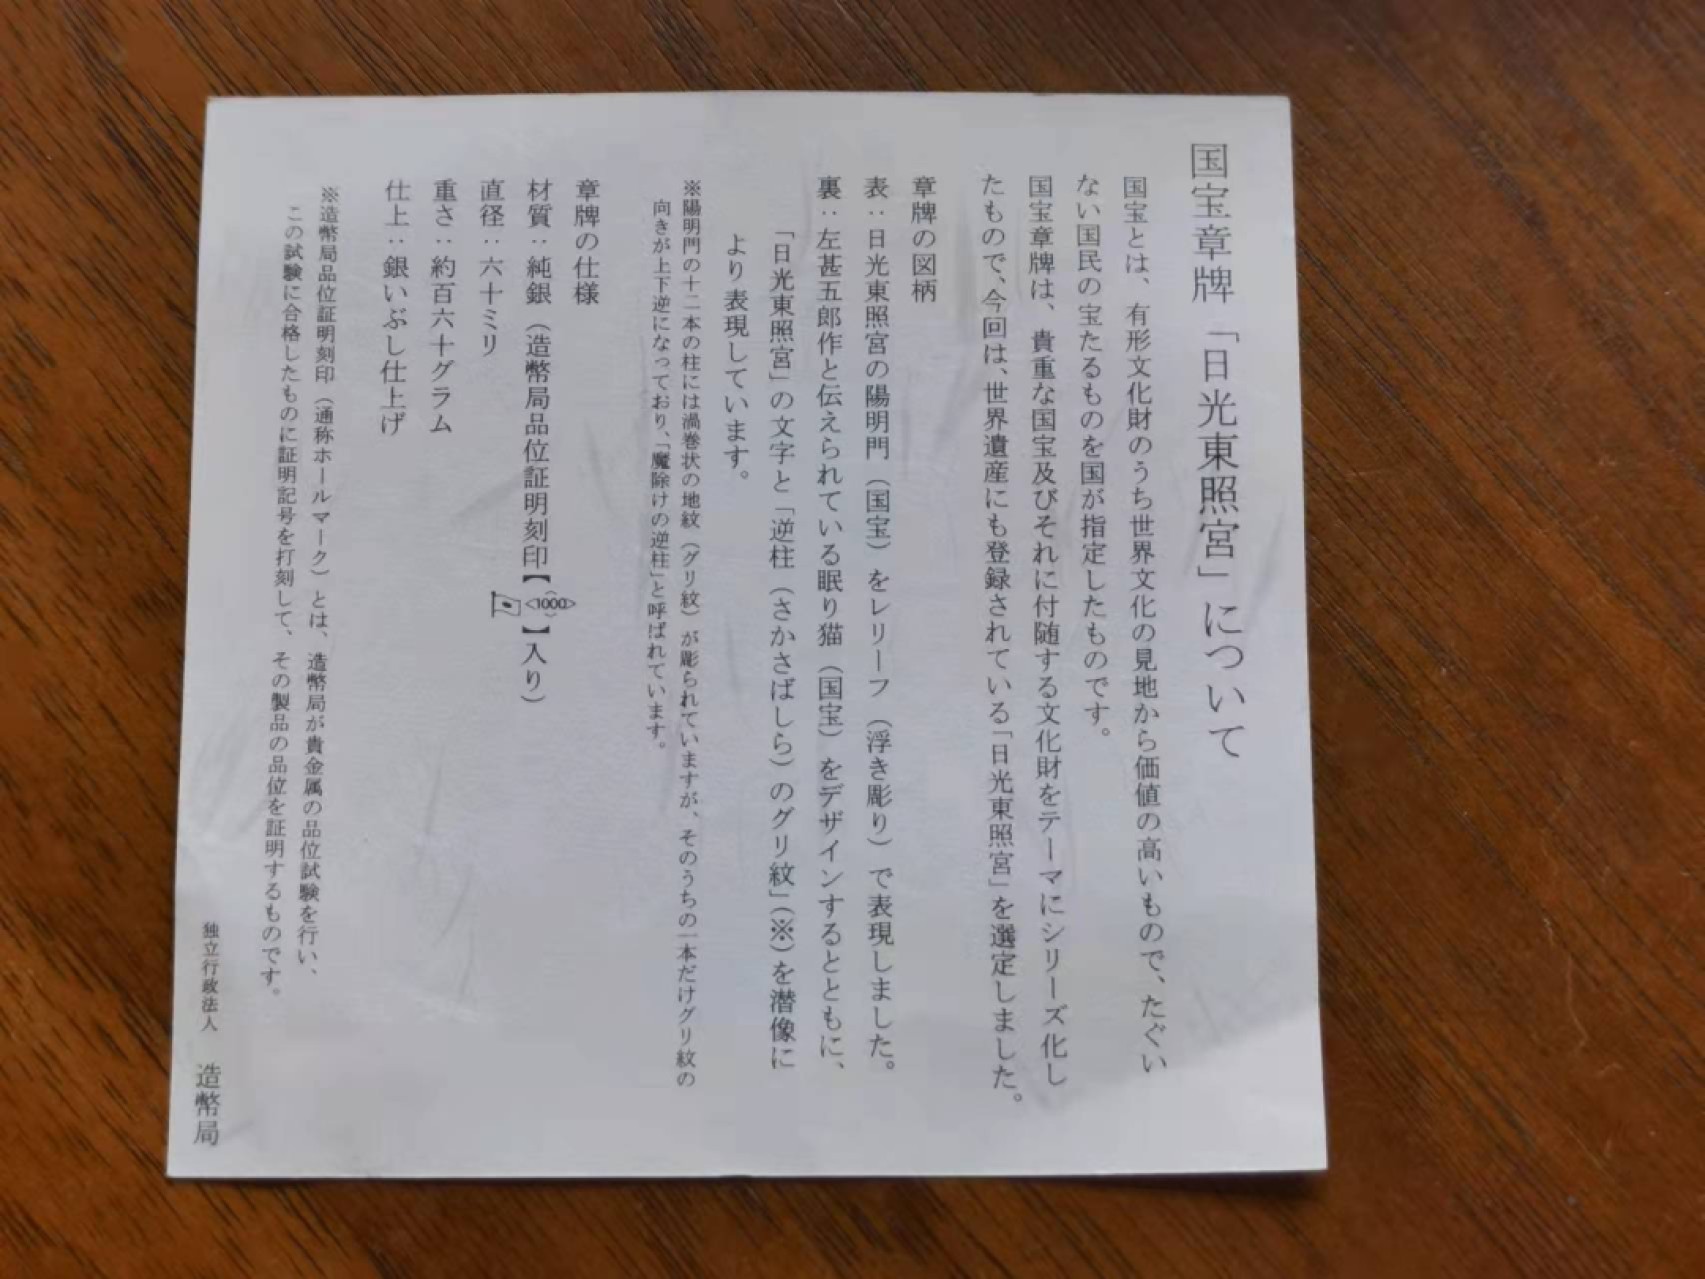 国宝章牌「日光東照宮」について
国宝とは、有形文化財のうち世界文化の見地から価値の高いもので、たぐい
ない国民の宝たるものを国が指定したものです。
国宝章牌は、貴重な国宝及びそれに付随する文化財をテーマにシリーズ化し
たもので、今回は、世界遺産にも登録されている「日光東照宮」を選定しました。
章牌の図柄
表：日光東照宮の陽明門（国宝）をレリーフ（浮き彫り）で表現しました。
裏：左甚五郎作と伝えられている眠り猫（国宝）をデザインするとともに、
「日光東照宮」の文字と「逆柱（さかさばしら）のグリ紋」（※）を潜像に
より表現しています。
※陽明門の十二本の柱には渦巻状の地紋（グリ紋）が彫られていますが、そのうちの一本だけグリ紋の
向きが上下逆になっており、「魔除けの逆柱」と呼ばれています。
章牌の仕様
材質：純銀（造幣局品位証明刻印【<1000>】入り）
直径：六十ミリ
重さ：約百六十グラム
仕上：銀いぶし仕上げ
※造幣局品位証明刻印（通称ホールマーク）とは、造幣局が貴金属の品位試験を行い、
この試験に合格したものに証明記号を打刻して、その製品の品位を証明するものです。
独立行政法人 造幣局